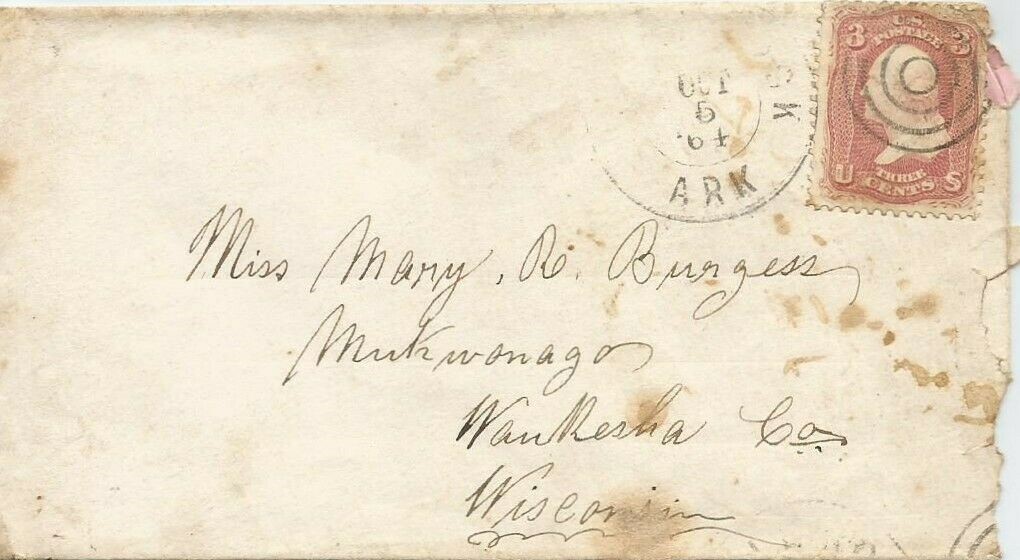 3 U.S. 3
POSTAGE
OCT
5
'64
ARK
U THREE S
CENTS
Miss Mary. R. Burgess
Mukwonago
Waukesha Co.
Wisconsin